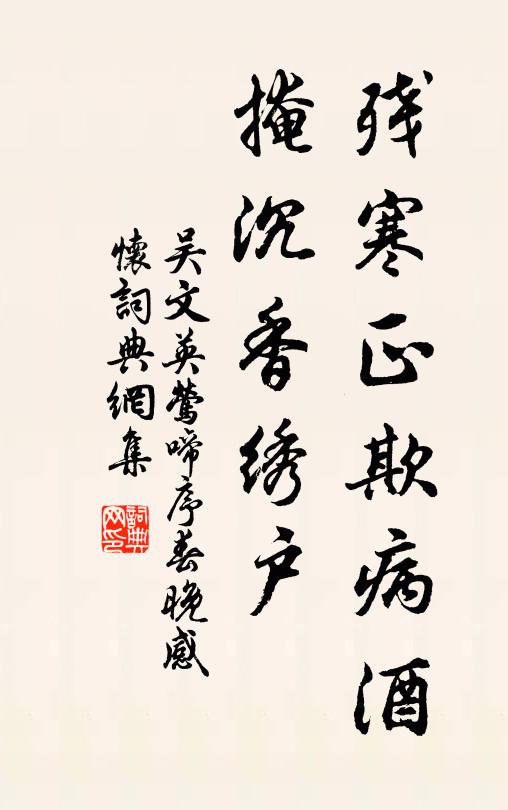 残寒正欺病酒
掩沉香绣户
吴文英莺啼序春晚感
懷詞典網集
詞典网印